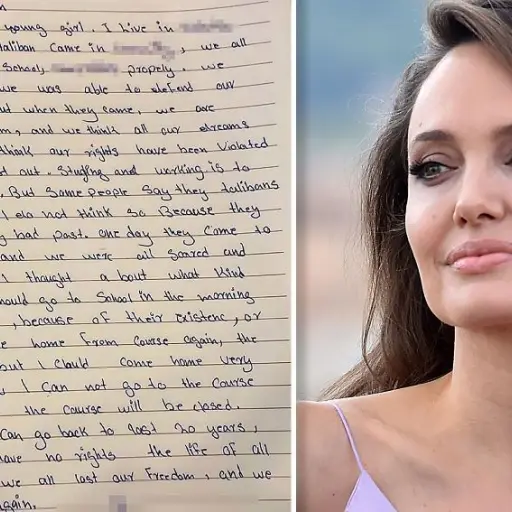 young girl. I Live in
Taliban Came in , we all
School, properly. we
we was able to defend our
but when they came, we are
, and we think all our dreams
think our rights have been violated
out. Studying and working is to
. But Some People Say they talibans
I do not think So Because they
bad past. one day they Come to
and we were all Scared and
I thought a bout what kind
should go to School in the morning
, because of their existenc, or
home From Course again, the
but I Could Come home very
, I Can not go to the Course
the Course will be closed.
Can go back to last 20 years,
have no rights the life of all
we all lost our Freedom, and we
again.